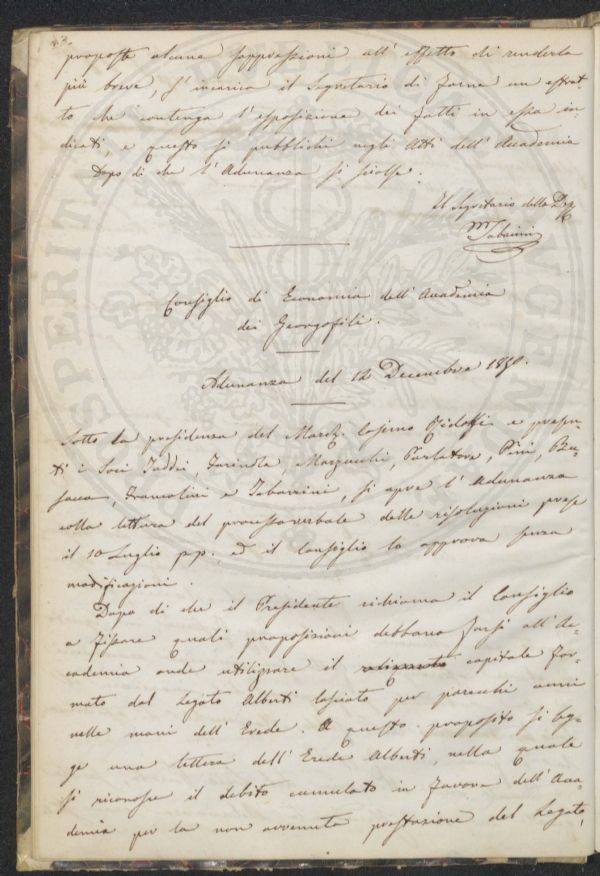 proposte alcune soppressioni all'effetto di renderla
più breve, s'incarica il Segretario di farne un estrat-
to che contenga l'esposizione dei fatti in essa in-
dicati, e questo si pubblichi negli Atti dell'Accademia
Dopo di che l'Adunanza si sciolse.
Il Segretario delle
MTabarrini
Consiglio di Economia dell'Accademia
dei Georgofili.
Adunanza del 12 Decembre 1850.
Sotto la presidenza del March. Cosimo Ridolfi e presen-
ti i Soci Taddei Farinola, Marzucchi, Parlatore, Pini, Bu-
sacca, Francolini e Tabarrini, si apre l'Adunanza
colla lettura del processo verbale delle risoluzioni prese
il 10 Luglio p.p. ed il Consiglio lo approva senza
modificazioni.
Dopo di che il Presidente richiama il Consiglio
a fissare quali proposizioni debbano farsi all'Ac-
cademia onde utilizzare il capitale for-
mato dal Legato Alberti lasciato per parecchi anni
nelle mani dell'Erede. A questo proposito si leg-
ge una lettera dell'Erede Alberti, nella quale
si riconosce il debito cumulato in favore dell'Acca-
demia per la non avvenuta prestazione del Legato,